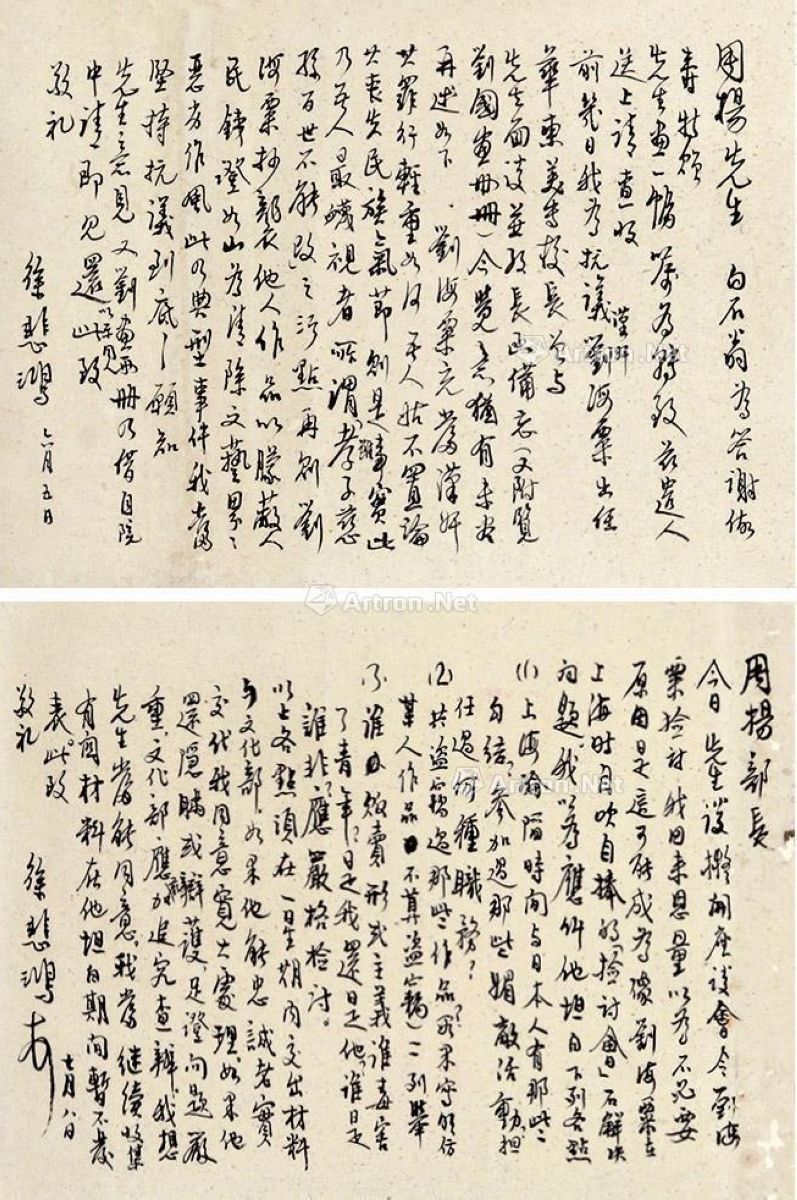 周揚先生 白石翁為答謝做
壽特頌
先生畫一幅囑為轉致茲遣人
送上請查收
前幾日我為抗議劉海粟出任
華東美專校長曾與
先生面談並致長函備忘(又附覽
劉國畫册)今覺意猶有未尽
再述如下.劉海粟充當漢奸
其罪行輕重如何吾人姑不置論
其喪失民族氣節則是事實此
乃吾人最衊視者所謂「孝子慈
孫百世不能改」之污點再則劉
海粟抄襲他人作品以矇蔽人
民鉄證如山為清除文藝界
惡劣作風此乃典型事件我當
堅持抗議到底!願知
先生意見又劉畫册乃借自院
中請即見還此致
敬礼
徐悲鴻 六月五日
Artron.Net
周揚部長
今日先生談擬開座談會令劉海
粟檢討我因未思量以為不必要
原因是這可能成為像劉海粟在
上海时自吹自捧的「檢討會」不解決
问题,我以為應叫他坦白下列各點
(1)上海淪陷時间与日本人有那些
勾結,參加過那些媚敵活動,担
任過何種職務?
(2)共盜窃過那些作品?
某人作品不算盜竊)一一列舉
了誰販賣形式主義誰毒害
了青年?是我還是他,誰是
誰非?應嚴格檢討。
以上各點須在一星期内交出材料
与文化部,如果他能忠誠老實
交代我同意寬大處理如果他
還隱瞞或辯護,足證问題嚴
重,文化部應加追究查辦,我想
先生當能同意,我當继续收集
有関材料在他坦白期间暫不發
表,此致
敬礼
徐悲鴻 七月八日